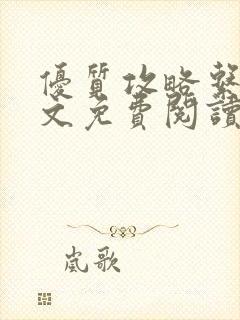 優質攻略繫
文免費閱讀
嵐歌